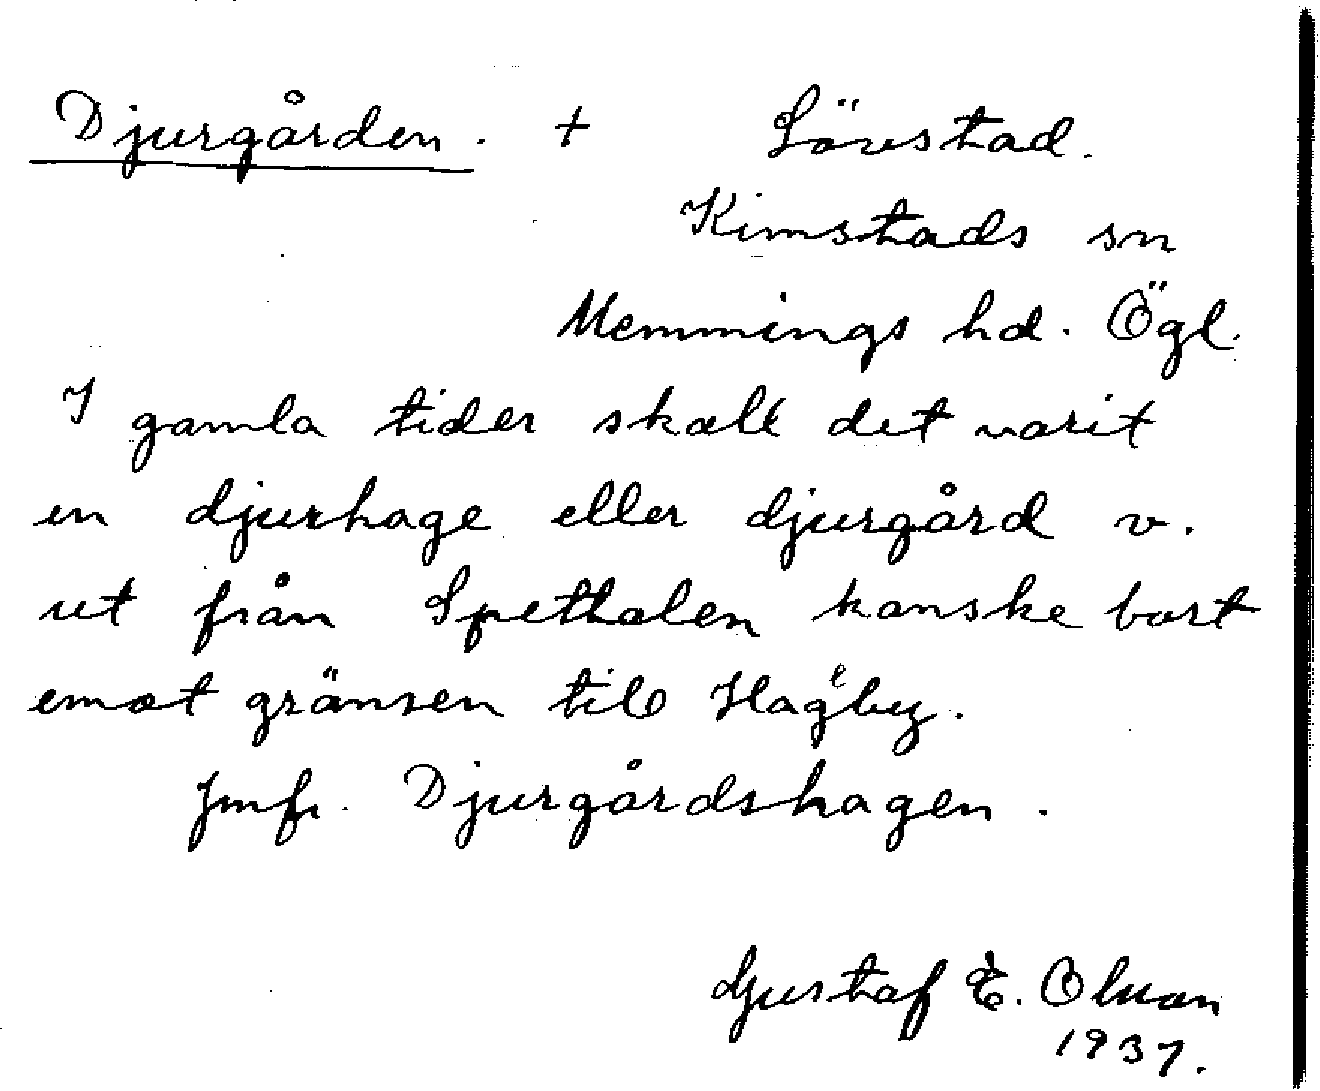 Djurgården. + Lövstad.
Kimstads sn
Memmings hd. Ögl.
I gamla tider skall det varit
en djurhage eller djurgård v.
ut från Spethalen kanske bort
emot gränsen till Hageby.
Jmfr. Djurgårdshagen.
Gustaf E. Olsson
1937.